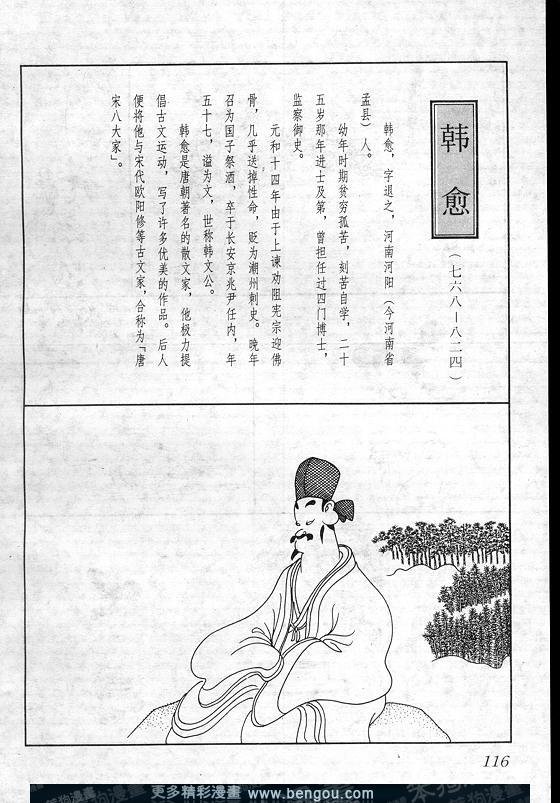 韩愈
（七六八—八二四）
韩愈，字退之，河南河阳（今河南省
孟县）人。
幼年时期贫穷孤苦，刻苦自学，二十
五岁那年进士及第，曾担任过四门博士，
监察御史。
元和十四年由于上谏劝阻宪宗迎佛
骨，几乎送掉性命，贬为潮州刺史。晚年
召为国子祭酒，卒于长安京兆尹任内，年
五十七，谥为文，世称韩文公。
韩愈是唐朝著名的散文家，他极力提
倡古文运动，写了许多优美的作品。后人
便将他与宋代欧阳修等古文家，合称为「唐
宋八大家」。
116
更多精彩漫畫 www.bengou.com